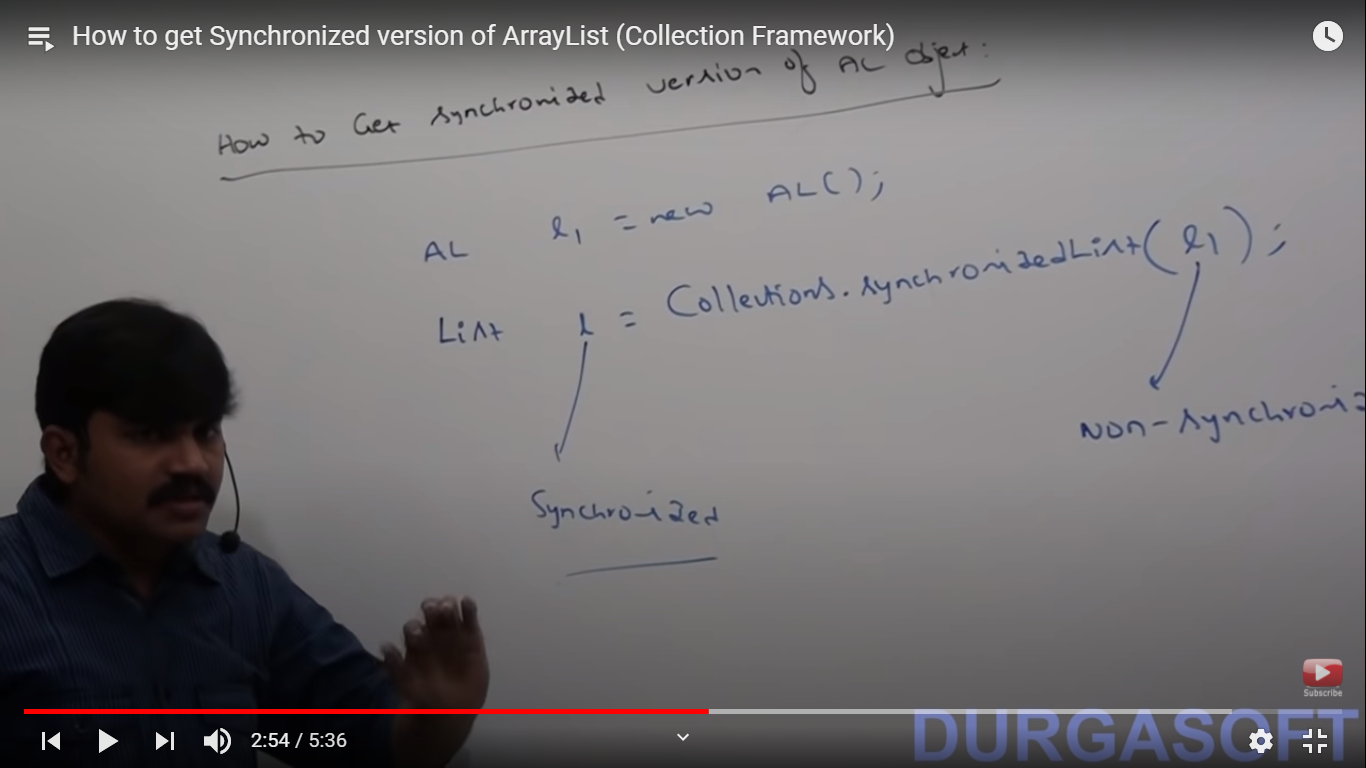 How to get Synchronized version of ArrayList (Collection Framework)
How to Get synchronized version of AL object:
AL l1 = new AL();
List l = Collections.synchronizedList(l1);
Non-synchroniz
Synchronized
Subscribe
DURGASOFT
2:54 / 5:36